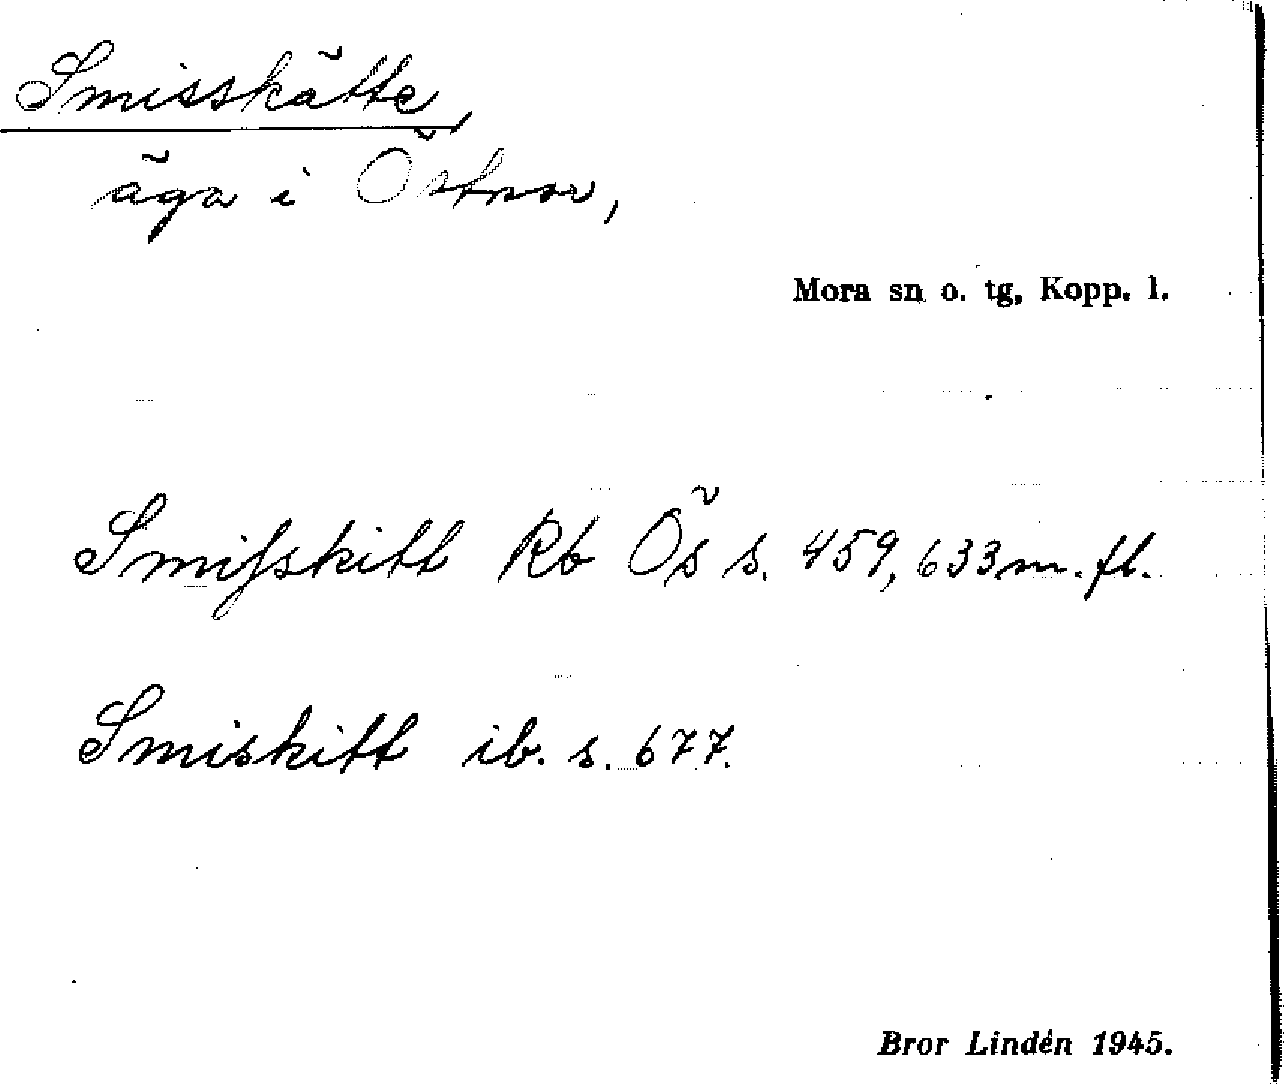 Smisskätte,
äga i Östnor,
Mora sn o. tg, Kopp. l.
Smisskitt Rb Ös s. 459, 633 m. fl.
Smiskitt ib. s. 677.
Bror Lindén 1945.